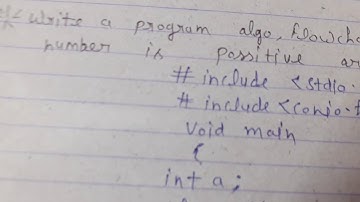 write a program algo, flowcha
number is possitive ar
# include <stdio.
# include <conio.
void main
{
int a;